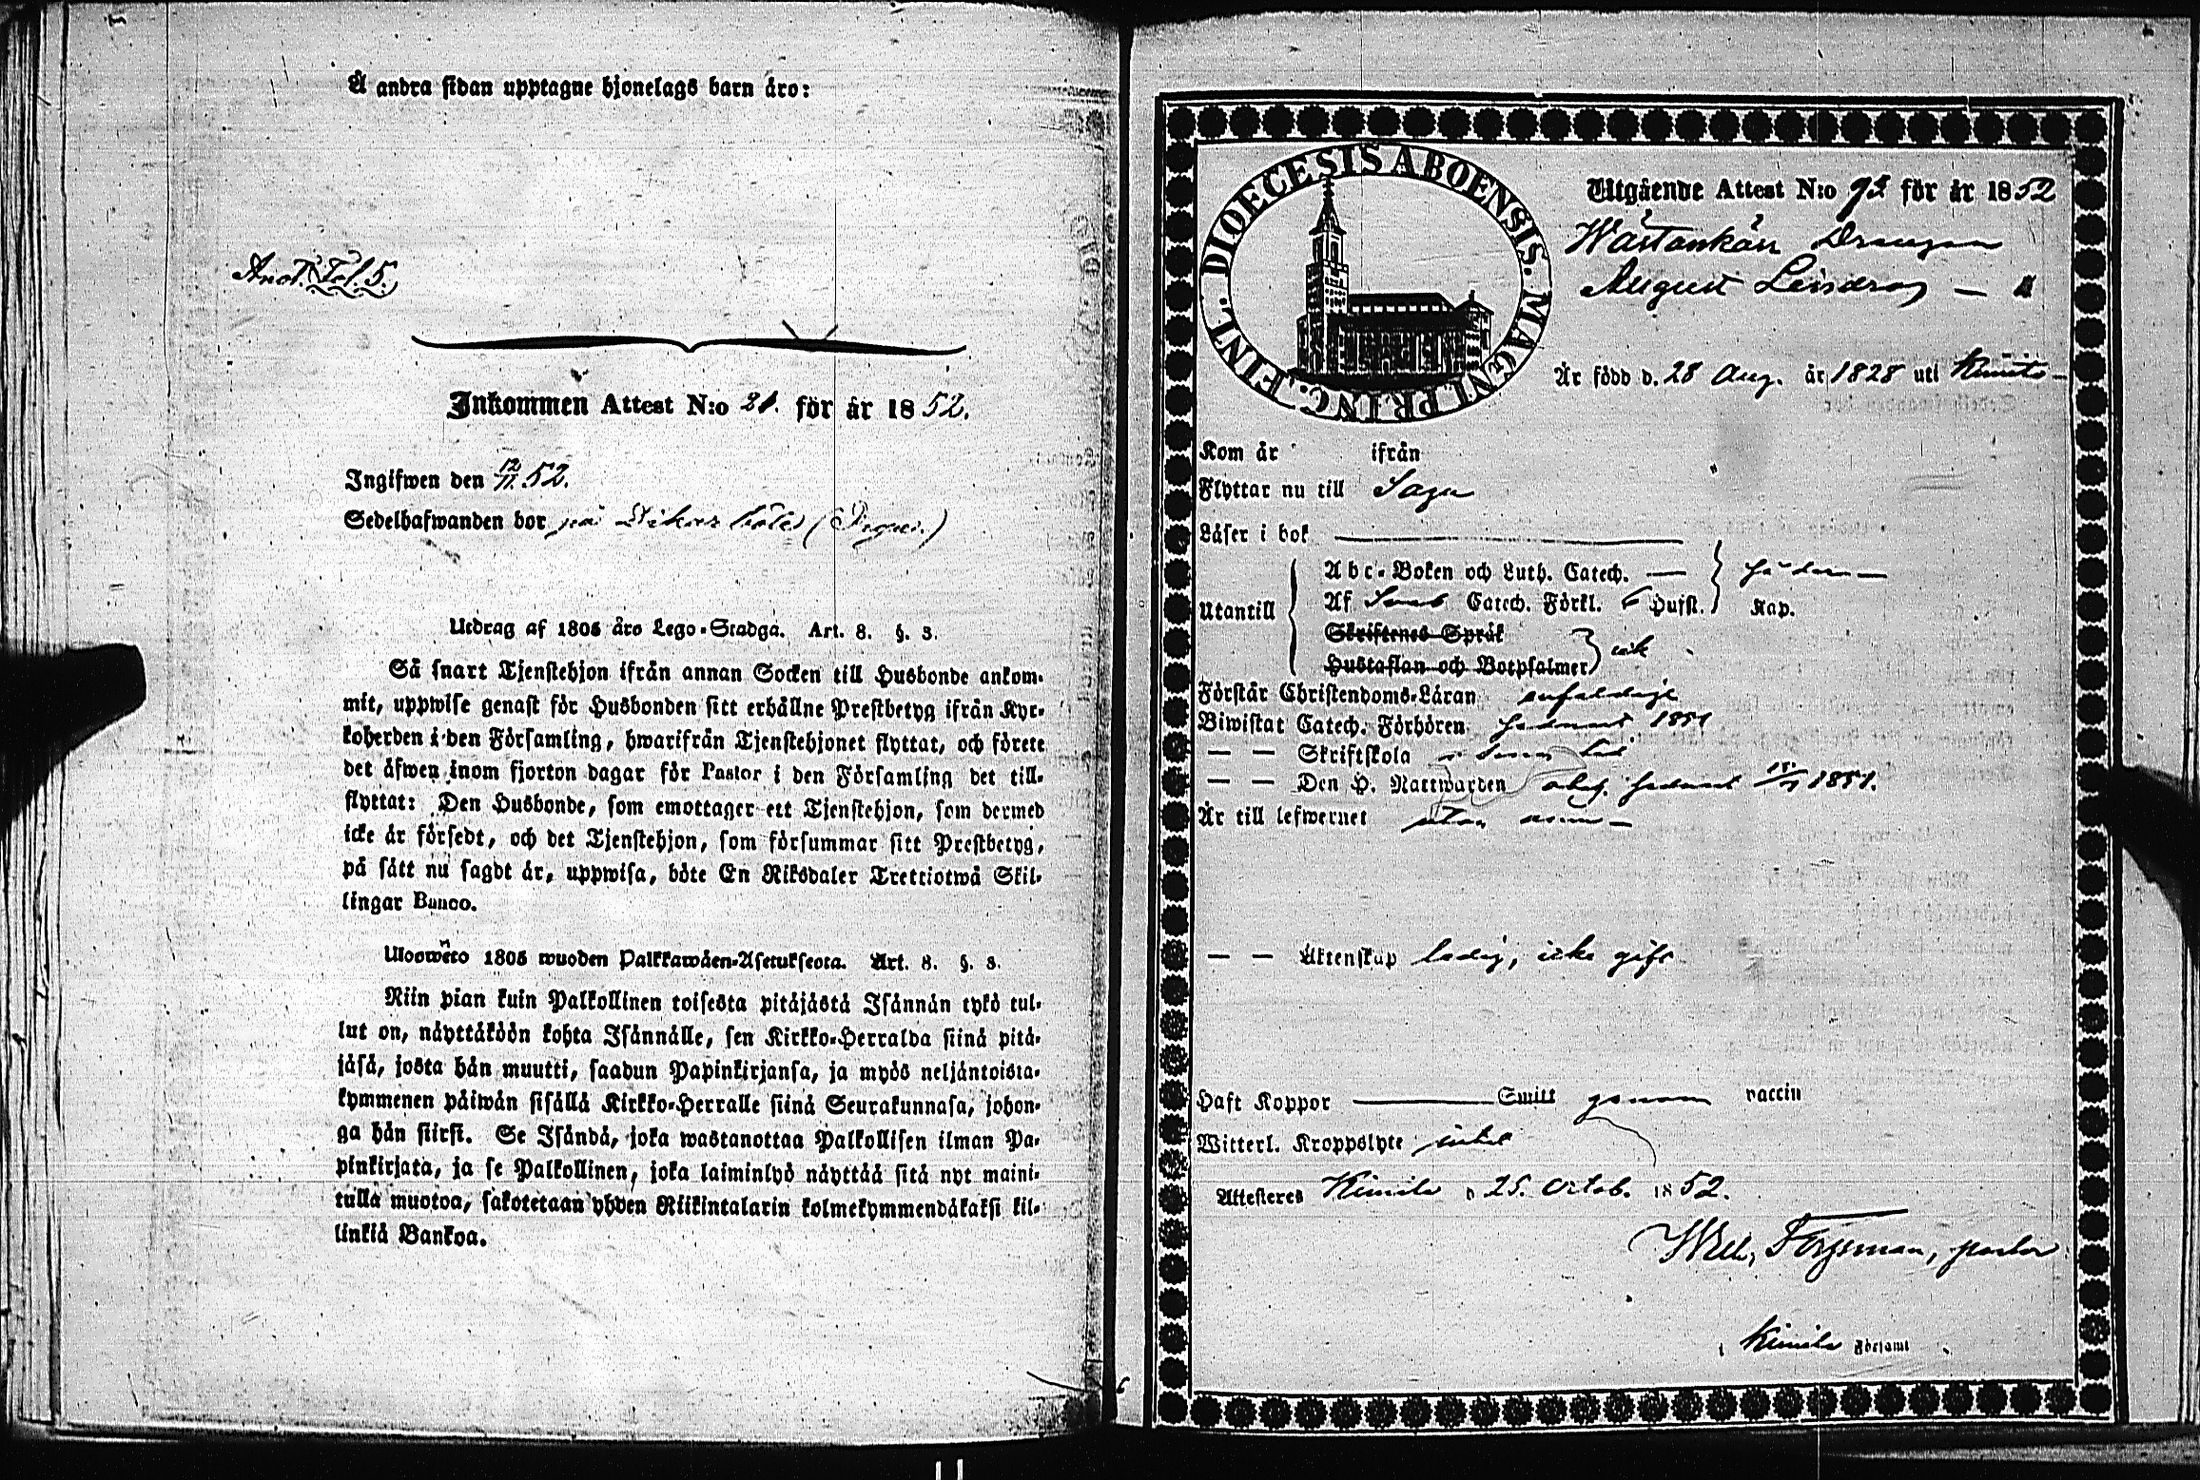 Å andra sidan upptagne hjonelags barn äro:
Anot. Fol. 5.
Inkommen Attest N:o 21. för år 1852.
Ingifwen den 12/11 52.
Sedelhafwanden bor på
Utdrag af 1805 års Lego-Stadga. Art. 8. §. 3.
Så snart Tjenstehjon ifrån annan Socken till Husbonde ankom-
mit, uppwise genast för Husbonden sitt erhållne Prestbetyg ifrån Kyr-
koherden i den Församling, hwarifrån Tjenstehjonet flyttat, och förete
det äfwen inom fjorton dagar för Pastor i den Församling det till-
flyttat: Den Husbonde, som emottager ett Tjenstehjon, som dermed
icke är försedt, och det Tjenstehjon, som försummar sitt Prestbetyg,
på sätt nu sagdt är, uppwisa, böte En Riksdaler Trettiotwå Skil-
lingar Banco.
Ulosweto 1805 wuoden Palkkawäen-Asetuksesta. Art. 8. §. 3.
Niin pian kuin Palkollinen toisesta pitäjästä Isännän tykö tul-
lut on, näyttäköön kohta Isännälle, sen Kirkko-Herralda siinä pitä-
jäsä, josta hän muutti, saadun Papinkirjansa, ja myös neljäntoista-
kymmenen päiwän sisällä Kirkko-Herralle siinä Seurakunnasa, johon-
ga hän siirsi. Se Isändä, joka wastanottaa Palkollisen ilman Pa-
pinkirjata, ja se Palkollinen, joka laiminlyö näyttää sitä nyt maini-
tulla muotoa, sakotetaan yhden Riikintalarin kolmekymmendäkaksi kil-
linkiä Bankoa.
DIOECESIS ABOENSIS. MAGNI PRINC. FINL.
Utgående Attest N:o för år 1852
Wästankärr Drängen
August Lindros
Är född d. 28 Aug. år 1828 uti Kimito
Kom år ifrån
Flyttar nu till Sagu
Läser i bok
Abc-Boken och Luth. Catech.
Utantill Af Catech. Förkl. 6 Hufst. Kap.
Skriftenes Språk
Hustaflan och Botpsalmer
Förstår Christendoms-Läran enfaldigt
Biwistat Catech. Förhören 1851
— — Skriftskola
— — Den H. Nattwarden 1851.
Är till lefwernet utan
— — Äktenskap ledig, icke gift
Haft Koppor Smitt genom vaccin
Witterl. Kroppslyte intet
Attesteras Kimito d 25. Octob. 1852.
Wilh. Forsman, pastor
i Kimito Församl